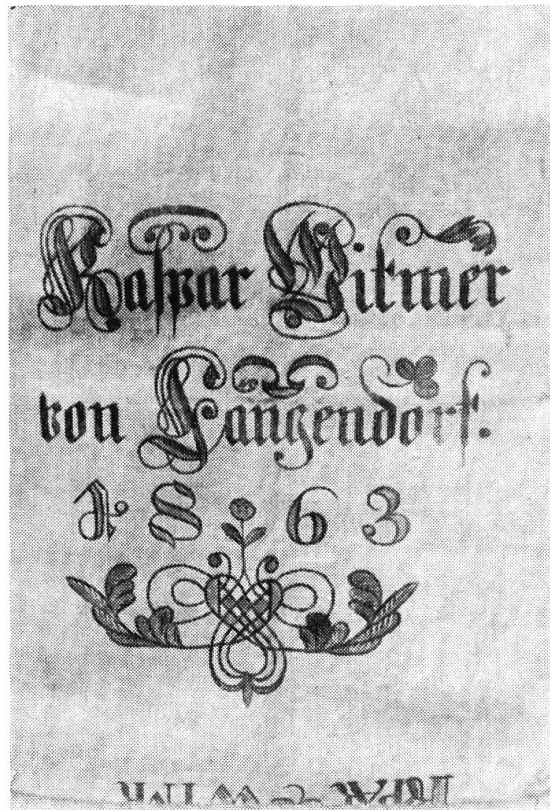 Kaspar Witmer
von Langendorf.
1863